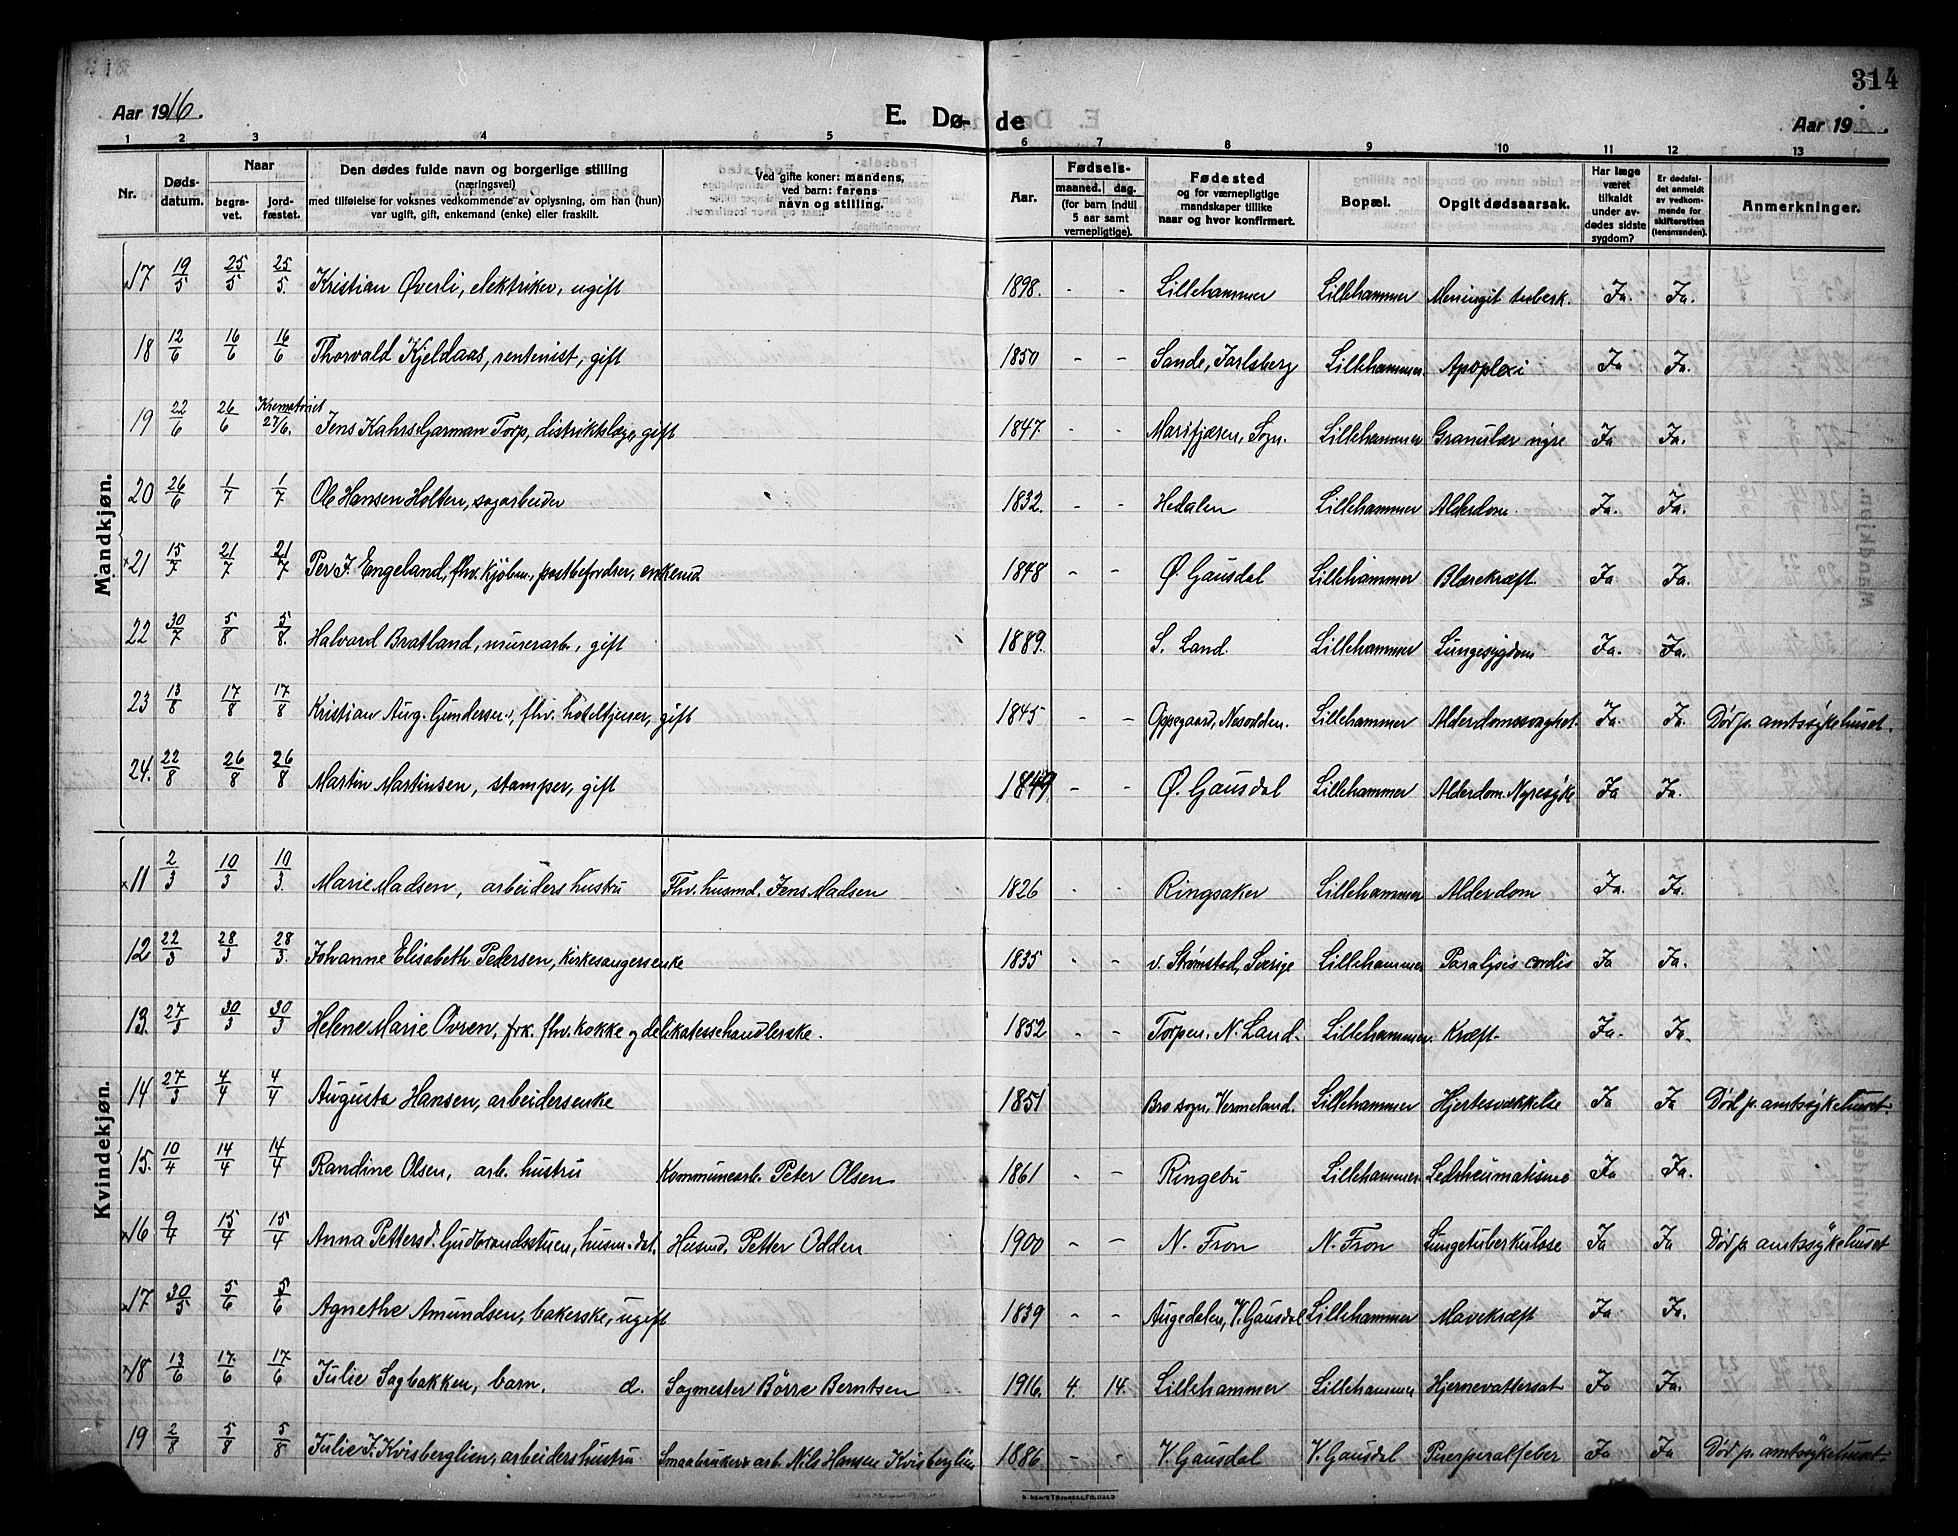 314
Aar 1916.
E. Dø- de
Aar 19
1 2 3 4 5 6 7 8 9 10 11 12 13
Nr. Døds-datum. Naar begra-vet. jord-fæstet. Den dødes fulde navn og borgerlige stilling (næringsvei) med tilføielse for voksnes vedkommende av oplysning, om han (hun) var ugift, gift, enkemand (enke) eller fraskilt. Ved gifte koner: mandens, ved barn: farens navn og stilling. Aar. Fødsels- maaned. dag. (for barn indtil 5 aar samt vernepligtige). Fødested og for værnepligtige mandskaper tillike naar og hvor konfirmert. Bopæl. Opgit dødsaarsak. Har læge været tilkaldt under av-dødes sidste sygdom? Er dødsfal-det anmeldt av vedkom-mende for skifteretten (lensmanden). Anmerkninger.
Mandkjøn.
17 19/5 25/5 25/5. Kristian Øverli, elektriker, ugift 1898. - - Lillehammer Lillehammer Meningit tuberk. Ja. Ja.
18 12/6 16/6 16/6 Thorvald Kjeldaas, rentenist, gift 1850 - - Sande, Jarlsberg Lillehammer Apoplexi Ja Ja.
19 22/6 26/6 Krematoriet 27/6. Jens Kahrs Garman Torp, distriktslæge, gift 1847. - - Marifjæren, Sogn. Lillehammer Granulær nyre Ja Ja.
20 26/6 1/7 1/7 Ole Hansen Holten, sagarbeider 1832. - - Hedalen Lillehammer Alderdom. Ja. Ja.
21 15/7 21/7 21/7 Per J. Engeland, fhv. kjøbm., postbefordrer, enkemd. 1848 - - Ø. Gausdal Lillehammer Blærekræft. Ja Ja.
22 30/7 5/8 5/8. Halvard Bratland, murerarb., gift 1889. S. Land. Lillehammer Lungesygdom Ja. Ja.
23 13/8 17/8 17/8 Kristian Aug. Gundersen, fhv. hoteltjener, gift 1845 - - Oppegaard, Nesodden. Lillehammer Alderdomssvaghet. Ja. Ja. Død p. amtssykehuset.
24. 22/8 26/8 26/8 Martin Martinsen, stamper, gift 1849 - - Ø. Gausdal Lillehammer Alderdom. Nyresyke Ja Ja.
Kvindekjøn.
11 2/3 10/3 10/3. Marie Madsen, arbeiders hustru Fhv. husmd. Jens Madsen 1826 - - Ringsaker Lillehammer Alderdom Ja. Ja.
12 22/3 28/3 28/3. Johanne Elisabeth Pedersen, kirkesangersenke 1835 - - v. Strømstad, Sverige Lillehammer Paralysis cordis Ja Ja.
13. 27/3 30/3 30/3 Helene Marie Ovren, frk. fhv. kokke og delikatessehandlerske. 1852 - - Torpen, N. Land. Lillehammer. Kræft. Ja. Ja.
14 27/3 4/4 4/4 Augusta Hansen, arbeidersenke 1851 Bro sogn, Vermeland. Lillehammer Hjertesvækkelse Ja Ja Død p. amtssykehuset
15. 10/4 14/4 14/4 Randine Olsen, arb. hustru Kommunearb. Peter Olsen 1861 - - Ringebu Lillehammer. Ledrheumatisme Ja Ja.
16 9/4 15/4 15/4 Anna Pettersd. Gudbrandsstuen, husm. dat. Husmd. Petter Odden 1900 - - N. Fron N. Fron Lungetuberkulose Ja Ja Død p. amtssykehuset
17 30/5 5/6 5/6 Agnethe Amundsen, bakerske, ugift 1839 - - Augedalen, V. Gausdal Lillehammer Mavekræft Ja Ja.
18 13/6 17/6 17/6 Julie Sagbakken, barn. d. Sagmester Børre Berntsen 1916. 4. 14. Lillehammer Lillehammer Hjernevattersot Ja Ja.
19 2/8 5/8 5/8 Julie J. Kvisberglien, arbeiders hustru Smaabruker & arb. Nils Hansen Kvisberglien 1886 - - V. Gausdal V. Gausdal Puerperalfeber Ja Ja Død p. amtssykehuset